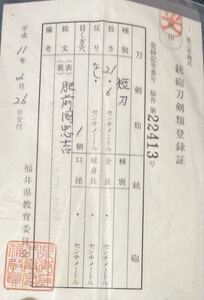 銃砲刀剣類登録証
登録記号番号 福井 第22413号
種別 短刀 銃砲
長さ 21.6センチメートル 全長 センチメートル
反り なし センチメートル 銃身長 センチメートル
目くぎ穴 1個 口径 センチメートル
銘文 (表) 肥前国忠吉
(裏)
備考
平成11年2月26日交付
福井県教育委員会